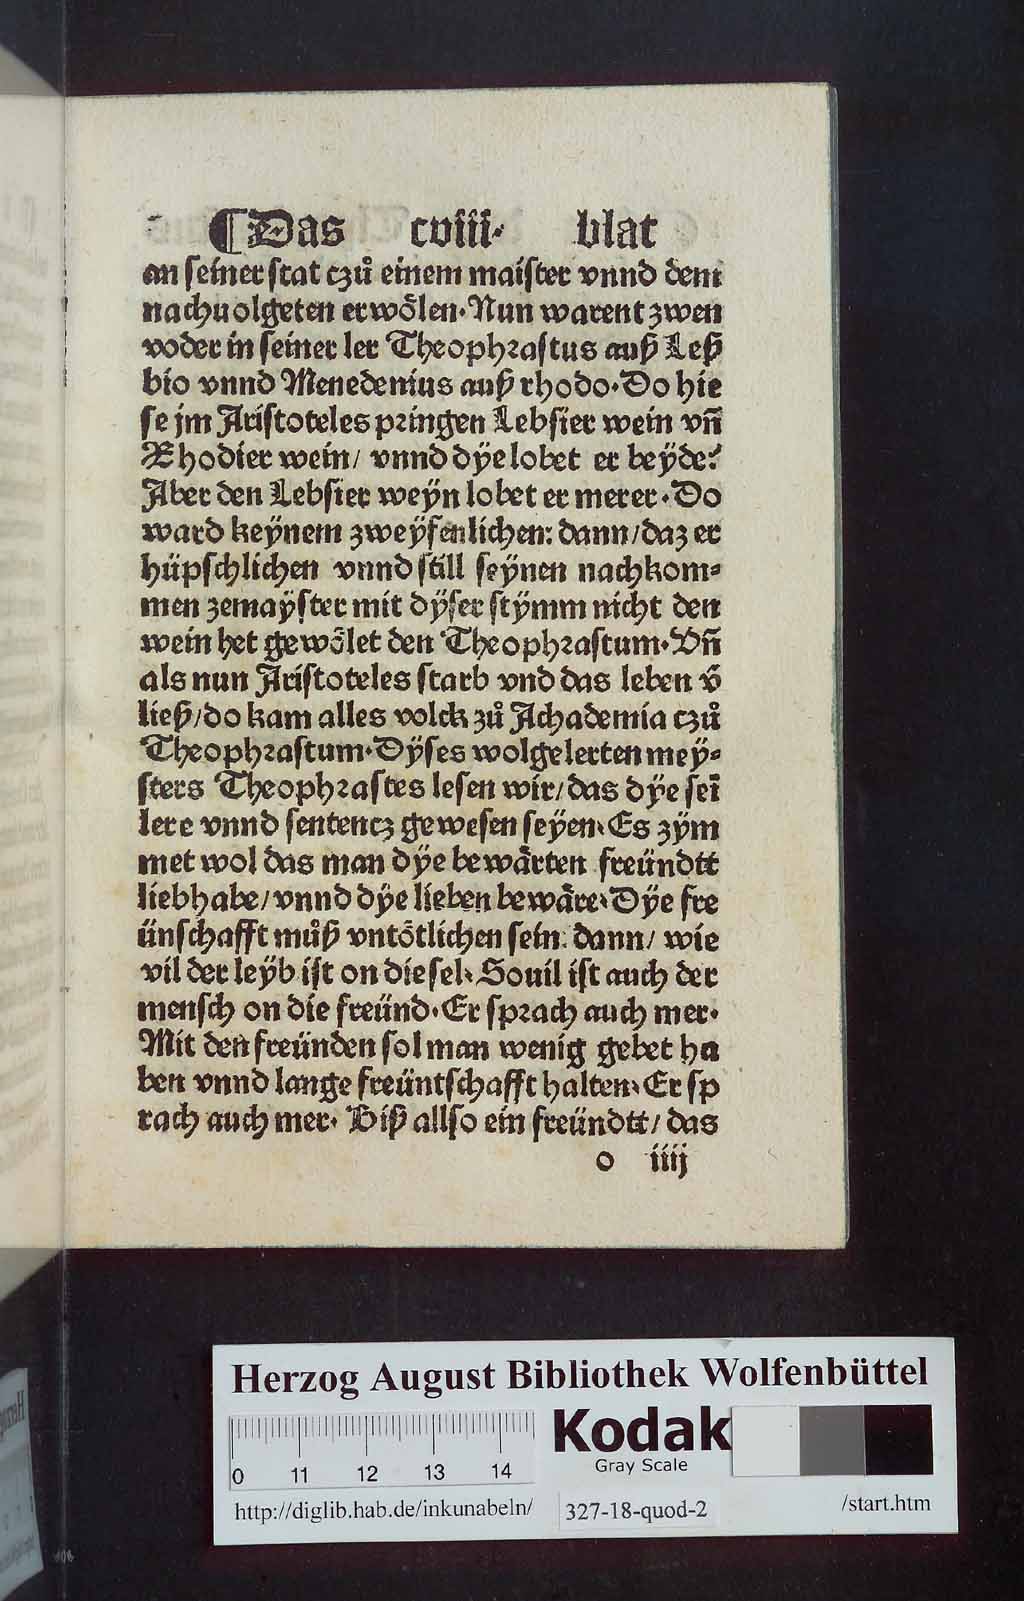 ¶Das cviii· blat
an seiner stat czů einem maister vnnd dem
nachuolgeten erwőlen·Nun warent zwen
voder in seiner ler Theophrastus auß Leß
bio vnnd Menedenius auß rhodo·Do hie
se jm Aristoteles pringen Lebsier wein vñ
Rhodier wein/ vnnd dÿe lobet er beÿde:
Aber den Lebsier weÿn lobet er merer·Do
ward keÿnem zweÿfenlichen: dann/daz er
hüpschlichen vnnd still seÿnen nachkom⸗
men zemaÿster mit dÿser stÿmm nicht den
wein het gewőlet den Theophrastum·Vñ
als nun Aristoteles starb vnd das leben v̄
ließ/do kam alles volck zů Achademia czů
Theophrastum·Dÿses wolgelerten meÿ⸗
sters Theophrastes lesen wir/das dÿe sei̅
lere vnnd sentencz gewesen seÿen·Es zÿm
met wol das man dÿe bewårten freündtt
liebhabe/vnnd dÿe lieben bewåre·Dÿe fre
ünschafft můß vntőtlichen sein: dann/ wie
vil der leÿb ist on die sel·Souil ist auch der
mensch on die freünd·Er sprach auch mer·
Mit den freünden sol man wenig gebet ha
ben vnnd lange freüntschafft halten·Er sp
rach auch mer· Biß allso ein freündtt/das
o iiij
Herzog August Bibliothek Wolfenbüttel
0 11 12 13 14
Kodak
Gray Scale
http://diglib.hab.de/inkunabeln/
327-18-quod-2
/start.htm